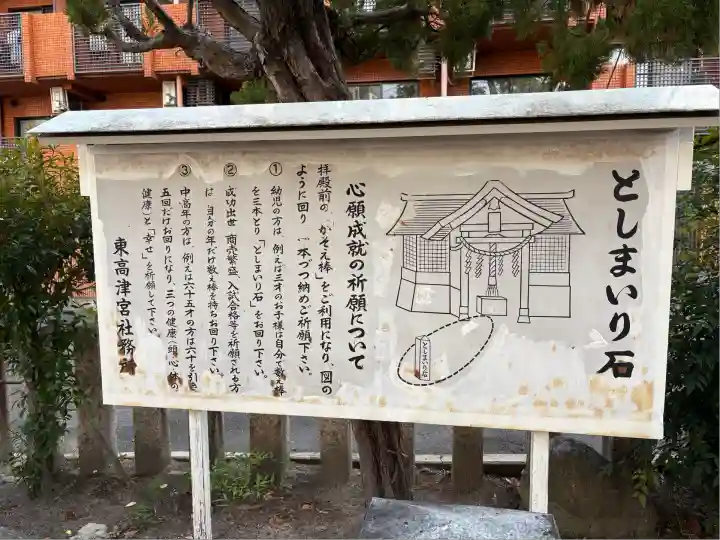 としまいり石
としまいり石
心願成就の祈願について
拝殿前の、かぞえ棒」をご利用になり、図の
ように回り 一本づつ納めご祈願下さい。
① 幼児の方は、例えば三才のお子様は自分で数え棒
を三本とり、「としまいり石」をお回り下さい。
② 成功出世 商売繁盛、入試合格等を祈願される方
は、自分の年だけ数え棒を持ちお回り下さい。
③ 中高年の方は、例えば六十五才の方は六十を
五回だけお回りになり、三つの健康(頭、心、体の
健康)と「幸せ」を祈願して下さい。
東高津宮社務所